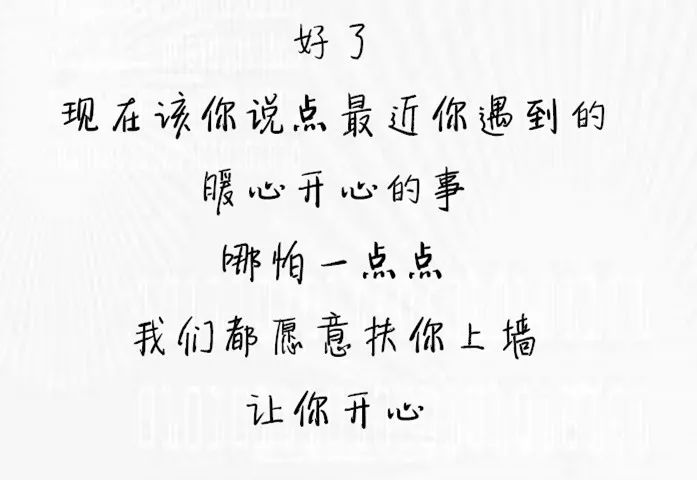 好了
现在该你说点最近你遇到的
暖心开心的事
哪怕一点点
我们都愿意扶你上墙
让你开心